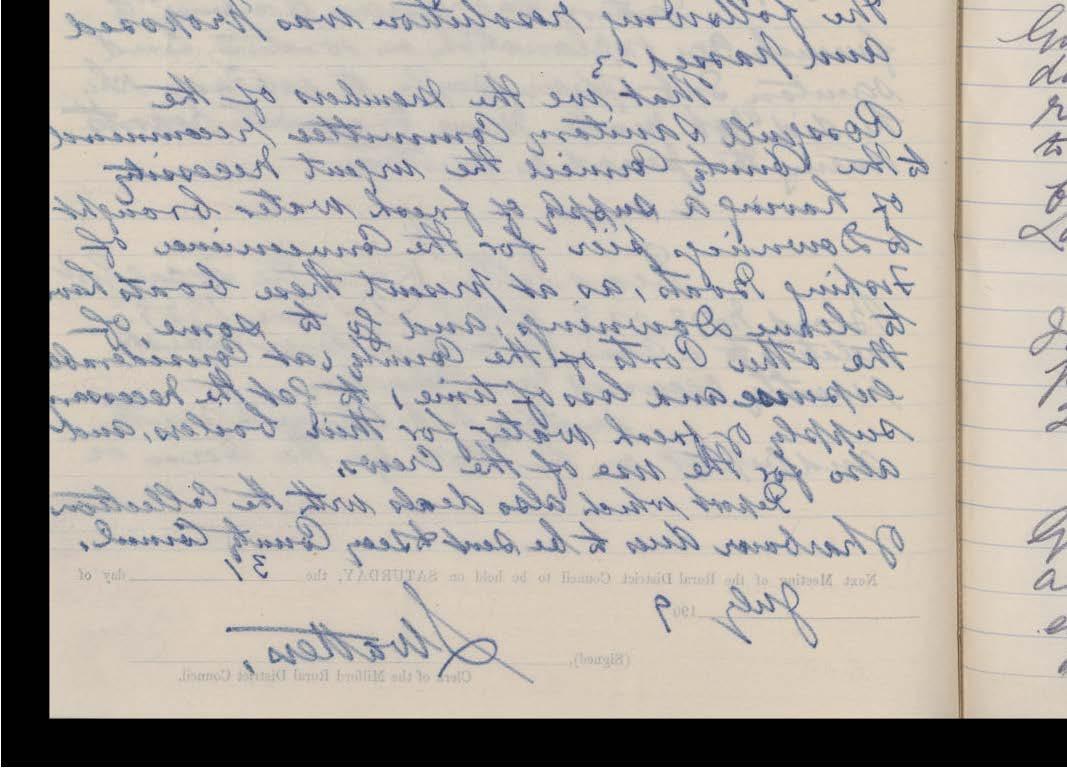 the following resolution was proposed
and passed:-
That we the members of the
Rosguill Sanitary Committee recommend
to the County Council the urgent necessity
of having a supply of fresh water brought
to Downings pier for the Convenience of
Fishing Boats, as at present these boats have
to leave Downings, and go to some of
the other Ports of the County at Considerable
expense and loss of time, to get the necessary
supply of fresh water for their boilers, and
also for the use of the Crews.
Report which also deals with the Collection
of harbour dues to be sent to Secy County Council.
Next Meeting of the Rural District Council to be held on SATURDAY, the 31 day of
July 1909
(Signed), Watters,
Clerk of the Milford Rural District Council.